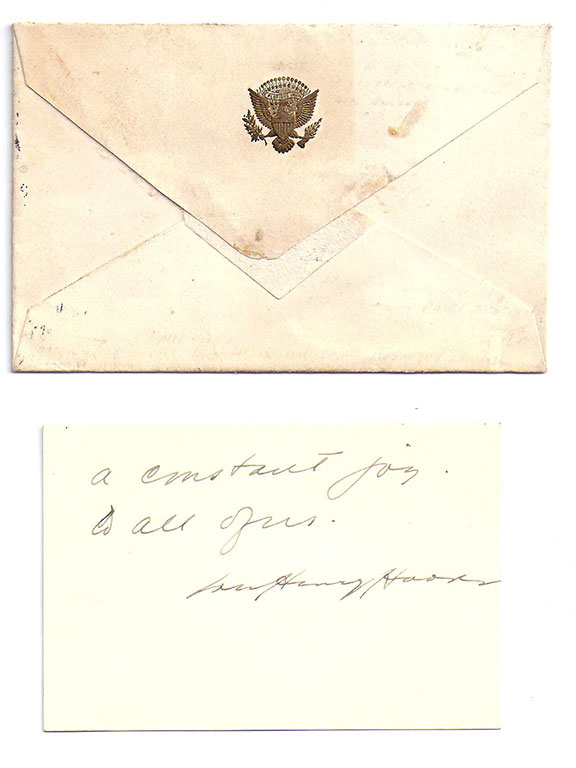 a constant joy.
to all of us.
Lou Henry Hoover